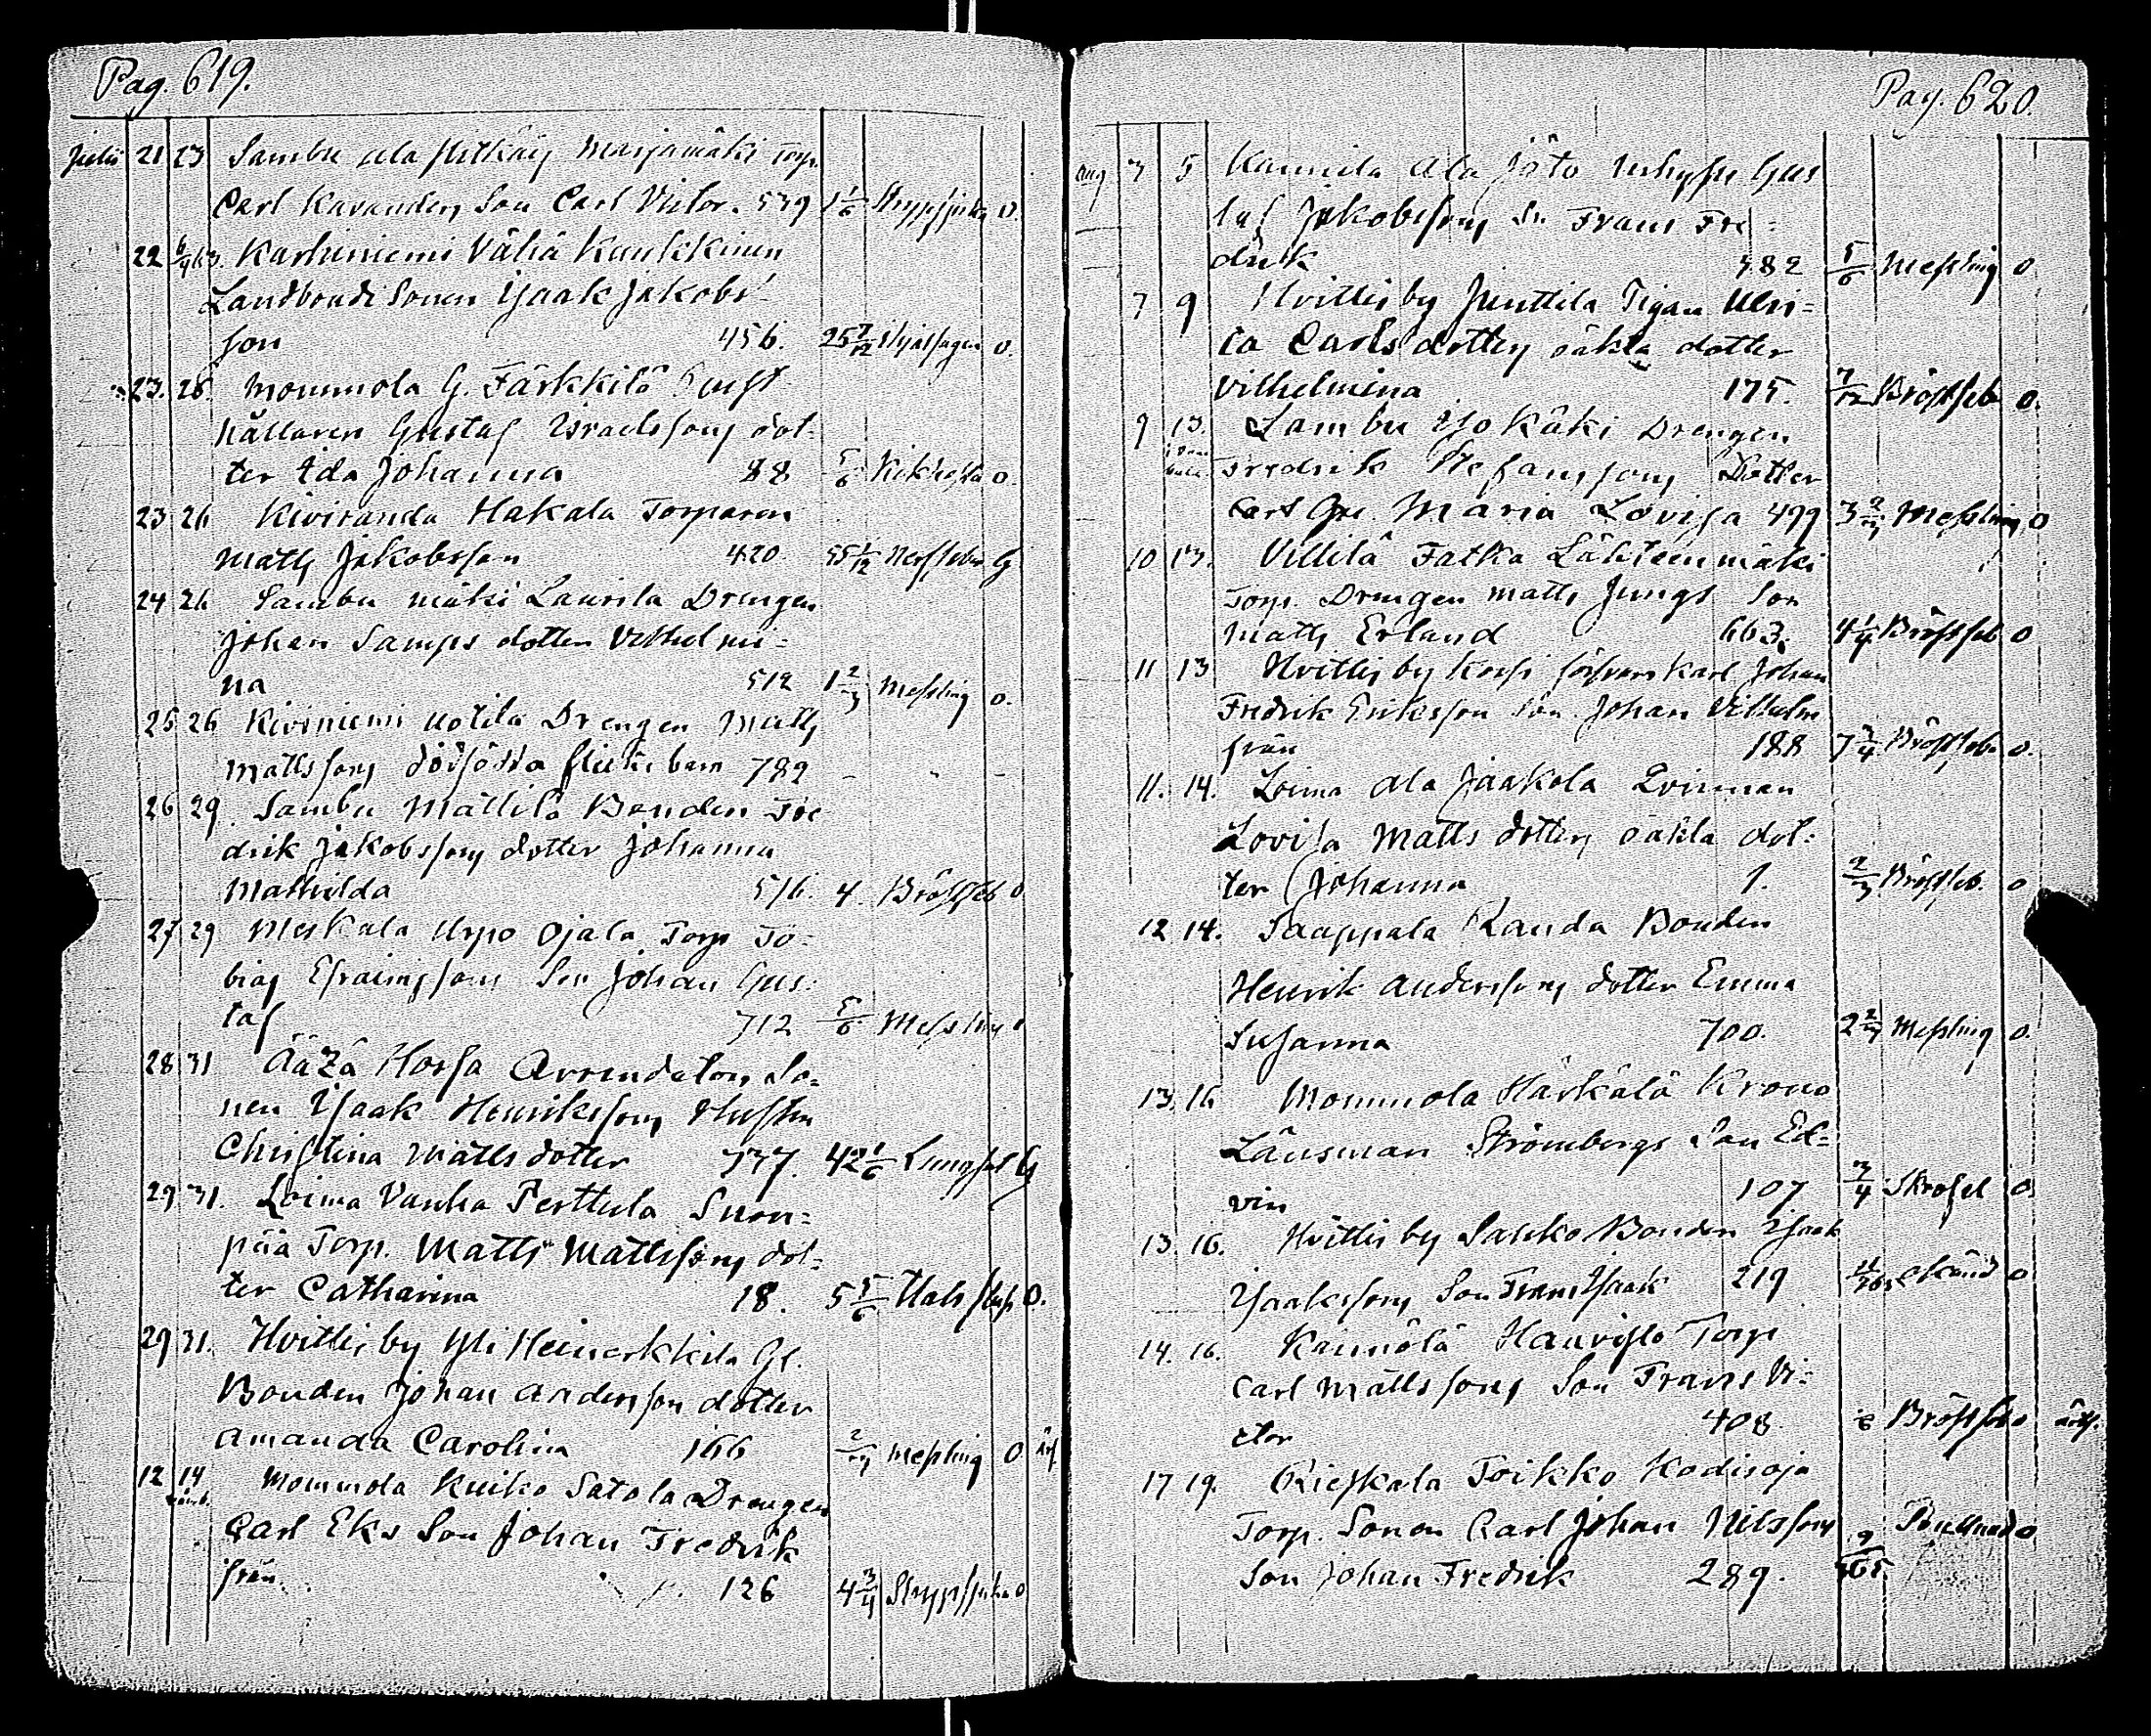 Pag. 619.
Julii 21 23 Sambu ala Pitkäij Marjamäki Torp.
Carl Kavanders Son Carl Victor. 539 1 1/6 Strypsjuka O.
22 Karhiniemi Vähä Kaukkinen
Landbondi Sonen Isaak Jakobs
son 456. 25 7/12 O.
23. 26. Mommola G. Färkkilö
hållaren Gustaf Israelssons dot-
ter Ida Johanna 88 5/6 Kikhosta O.
23 26 Kiviranda Hakala Torparen
Matts Jakobsson 420 55 1/12 G
24 26 Sambu mäki Laurila Drengen
Johan Samps dotter Vilhelmi-
na 512 1 2/3 Messling O.
25 26 Kiviniemi Uotila Drengen Matts
Mattssons dödfödda flicke barn 789 - - -
26 29. Sambu Mattila Bonden Fre
drik Jakobssons dotter Johanna
Mathilda 516. 4. Bröstfeb O
27 29 Meskala Urpo Ojala Torp To-
bias Efraimssons Son Johan Gus-
taf 712 5/6 Messling O
28 31 Ääzä Horsa Arrendators So-
nen Isaak Henrikssons Hustru
Christina Matts dotter 737. 42 1/6 Lungsot G
29 31. Loima Vanha Perttula Suon-
pää Torp. Matts Mattssons dot-
ter Catharina 18. 5 5/6 Hals O.
29 31. Hvittis by Yli Heinerkkilä Gl.
Bonden Johan Andersson dotter
Amanda Carolina 166 2/3 Messling O
12 14 Mommola Kuiko Satola Drengen
Carl Eks Son Johan Fredrik
från 126 4 3/4 Strypsjuka O
Pag. 620.
Aug 3 5 Kaunila Ala Jäto Gus
taf Jakobssons Sn Frans Fre-
drik 382 5/6 Messling O
7 9 Hvittis by Junttila Pigan Ulri-
ca Carls dotters oäkta dotter
Vilhelmina 175. 7/12 Bröstfeb O.
9 13. Sambu Yso Käki Drengen
Fredrik Stefanssons Dotter
Maria Lovisa 499 3 2/3 Messling O
10 13. Villilä Fatka Lähteenmäki
Torp. Drengen Matts Jungs Son
Matts Erland 663. 4 1/4 Bröstfeb O
11 13 Hvittis by Korpi Karl Johan
Fredrik Eriksson Son Johan Vilhelm
från 188 7 3/4 Bröstfeb O.
11. 14. Loima Ala Jaakola Qvinnan
Lovisa Matts dotters oäkta dot-
ter Johanna 1. 2/3 Bröstfeb. O
12 14. Sauppala Randa Bonden
Henrik Anderssons dotter Emma
Susanna 700. 2 2/3 Messling O.
13. 16 Mommola Härkälä Krono
Länsman Strömbergs Son Ed-
vin 107 3/4 Skrofel O
13. 16. Hvittis by Sauko Bonden Isaak
Isaakssons Son Frans Isaak 219 O
14. 16. Raimälä Hauristo Torp
Carl Mattssons Son Frans Vi-
ctor 408 Bröstfeb O
17 19. Rieskala Toikko Kodisoja
Torp. Sonen Carl Johan Nilssons
Son Johan Fredrik 289. 9/365 O